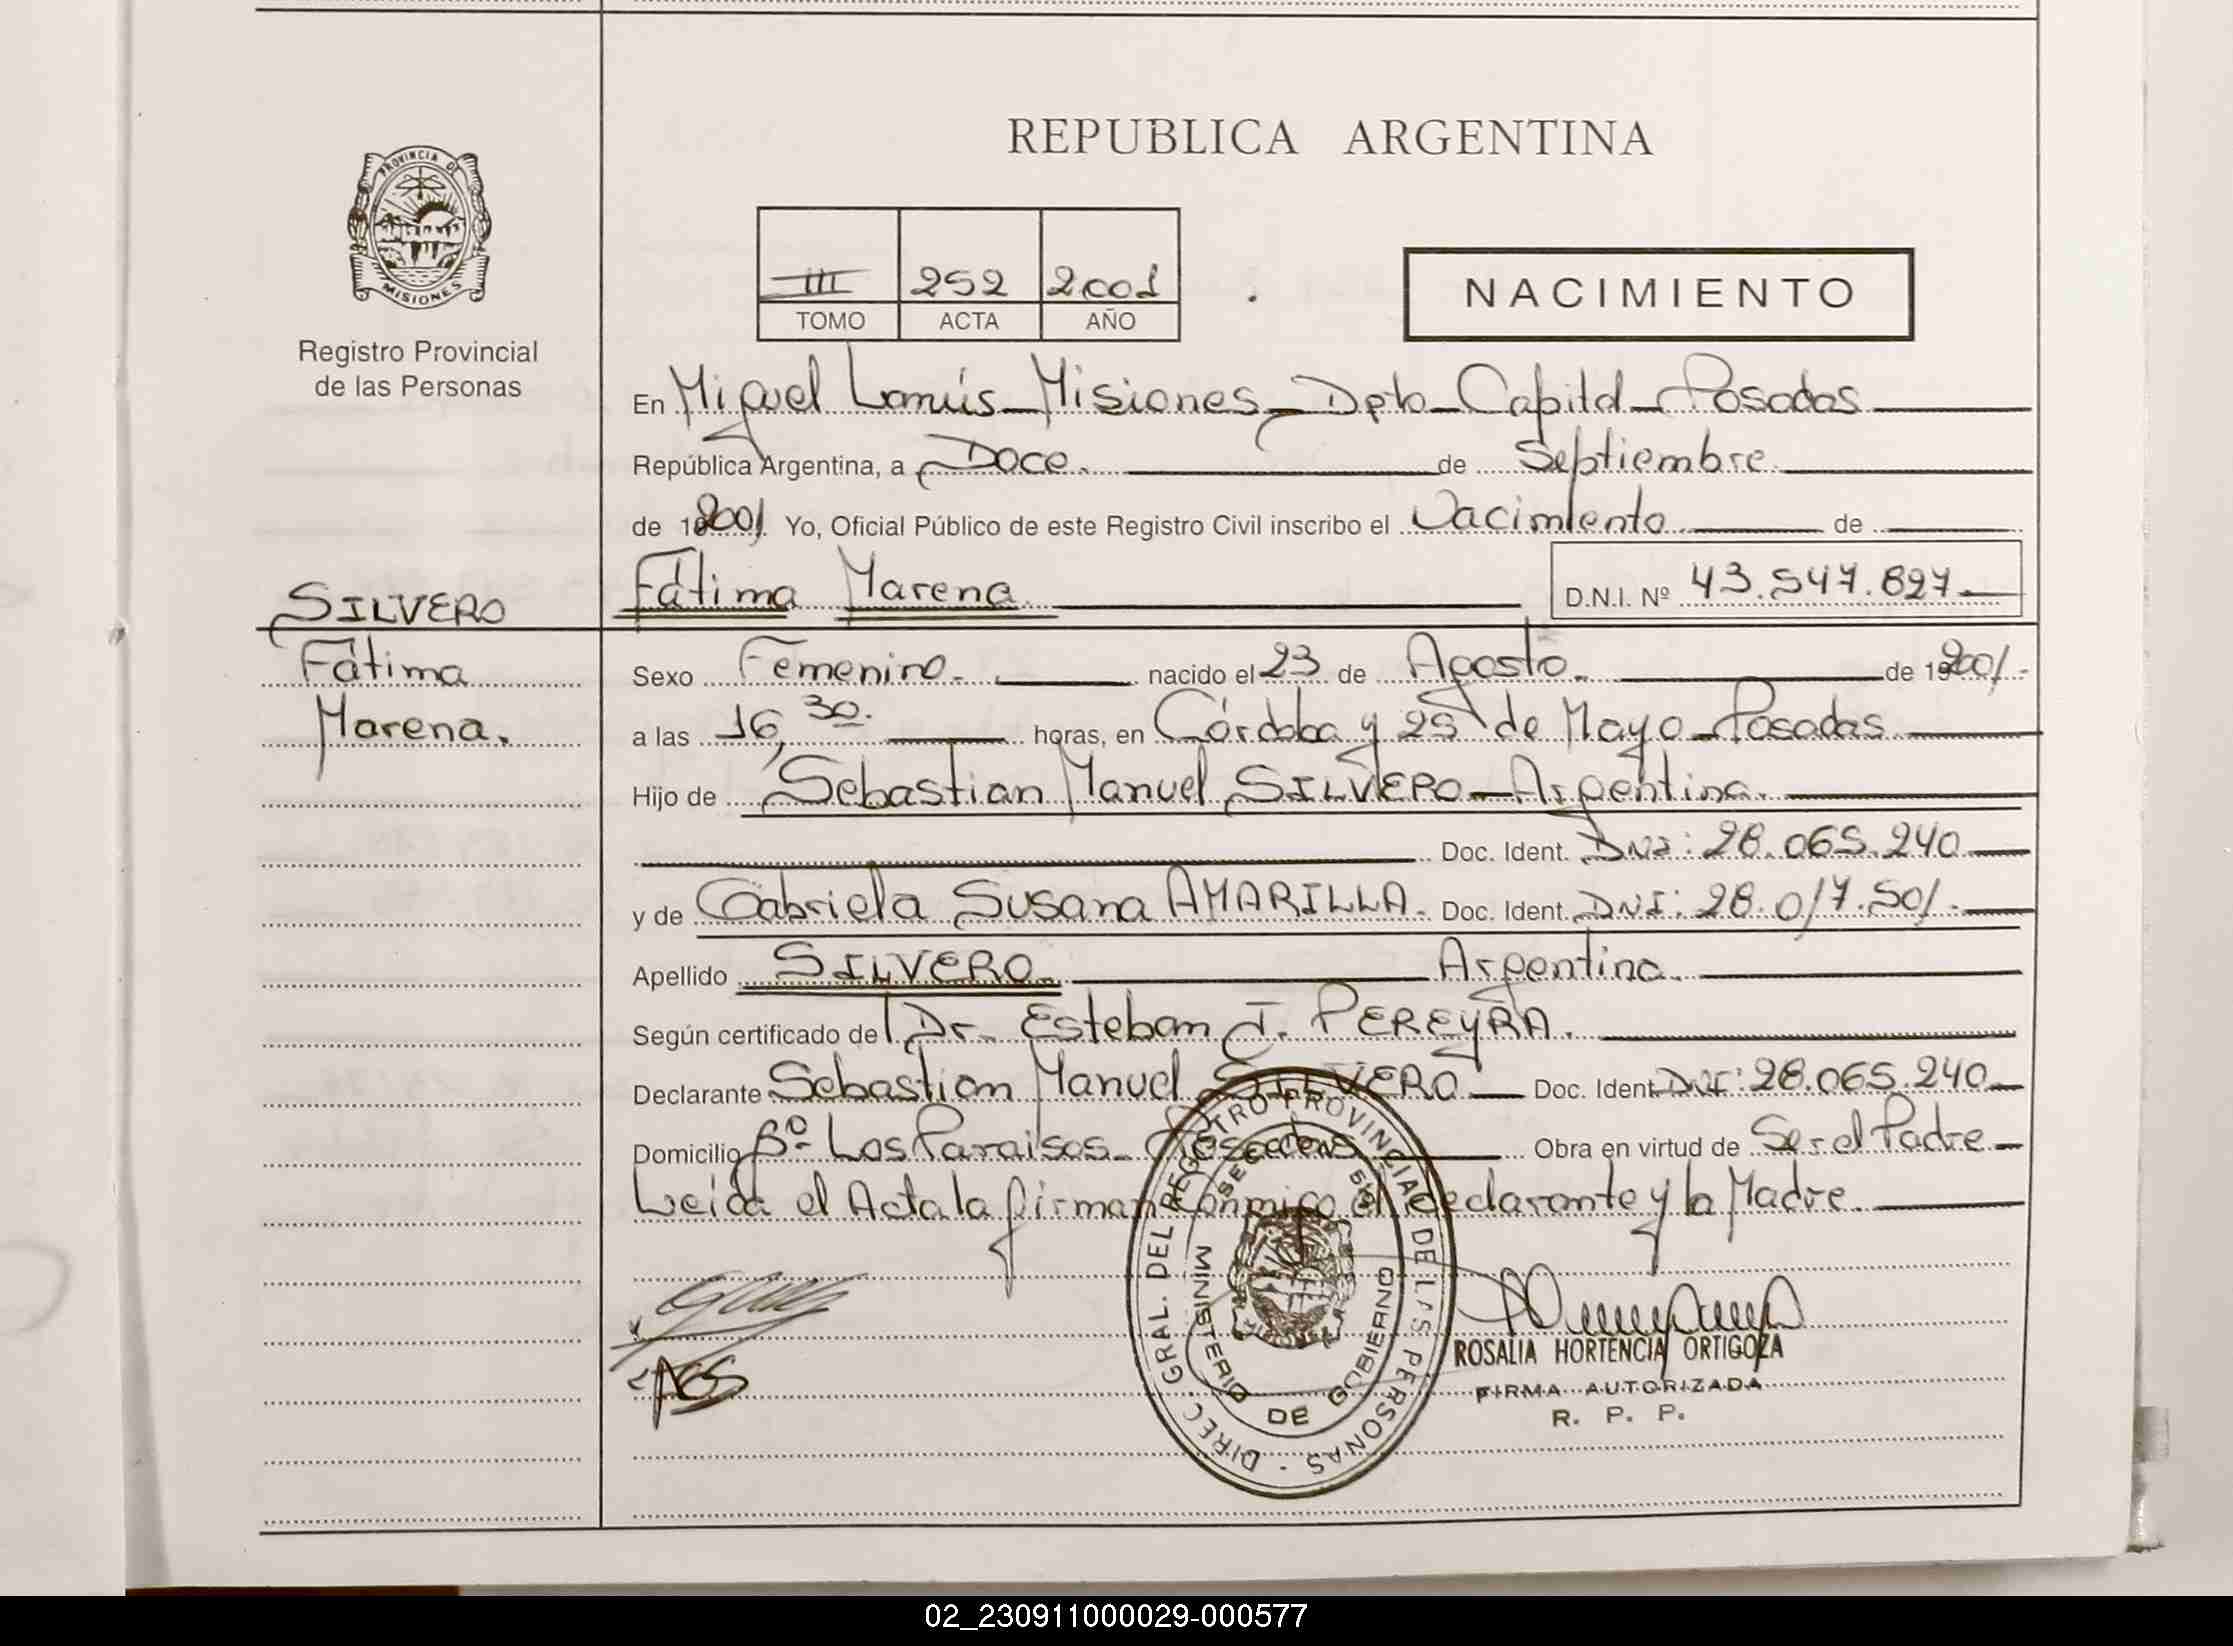 REPUBLICA ARGENTINA
PROVINCIA DE
MISIONES
Registro Provincial
de las Personas
III 252 2001
TOMO ACTA AÑO
NACIMIENTO
En Miguel Lanús - Misiones - Dpto - Capital - Posadas
República Argentina, a Doce. de Septiembre.
de 192001 Yo, Oficial Público de este Registro Civil inscribo el Nacimiento de
SILVERO
Fátima
Marena.
Fátima Marena D.N.I. Nº 43.547.827
Sexo Femenino. nacido el 23 de Agosto. de 192001.-
a las 16,30. horas, en Córdoba y 25 de Mayo - Posadas
Hijo de Sebastian Manuel SILVERO - Argentina.
Doc. Ident. DNI: 28.065.240
y de Gabriela Susana AMARILLA. Doc. Ident. DNI: 28.017.501.
Apellido SILVERO Argentina.
Según certificado de Dr. Esteban J. PEREYRA.
Declarante Sebastian Manuel SILVERO Doc. Ident. DNI: 28.065.240
Domicilio Bº Los Paraisos - Posadas Obra en virtud de Ser el Padre
Leída el Acta la firman conmigo el declarante y la Madre.
DIREC. GRAL. DEL REGISTRO PROVINCIAL DE LAS PERSONAS
MINISTERIO DE GOBIERNO
ROSALIA HORTENCIA ORTIGOZA
FIRMA AUTORIZADA
R. P. P.
02_230911000029-000577